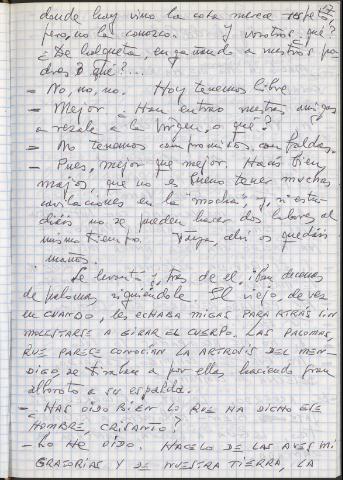 17
donde hay vino la cosa merece respeto,
pero, no la conozco. Y vosotros ¿qué?
¿De holgueta, engañando a vuestros pa-
dres o qué?...
- No, no, no. Hoy tenemos libre.
- Mejor. ¿Han entrao vuestras amigas
a rezale a la Virgen, o qué?
- No tenemos compromisos con faldas.
- Pues, mejor que mejor. Hacéis bien
majos, que no es bueno tener muchas
en la "mocha" y, si estu-
diáis no se pueden hacer dos labores al
mismo tiempo. Vaya, ahí os quedáis
Se levantó y, tras de él, iban decenas
de palomas siguiéndole. El viejo, de vez
en CUANDO, les ECHABA MIGAS PARA ATRÁS SIN
MOLESTARSE A GIRAR EL CUERPO. LAS PALOMAS,
QUE PARECE CONOCÍAN LA ARTROSIS DEL MEN-
DIGO, se tiraban a por ellas haciendo gran
alboroto a su espalda.
- ¿HAS OIDO BIEN LO QUE HA DICHO ESE
HOMBRE, CRISANTO?
- Lo HE OIDO. HACE LO DE LAS AVES MI
GRATORIAS Y DE NUESTRA TIERRA, LA